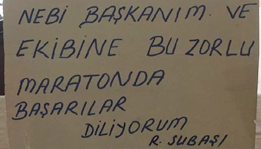 NEBİ BAŞKANIM. VE
EKİBİNE BU ZORLU
MARATONDA
BAŞARILAR
DİLİYORUM
R. SUBAŞI